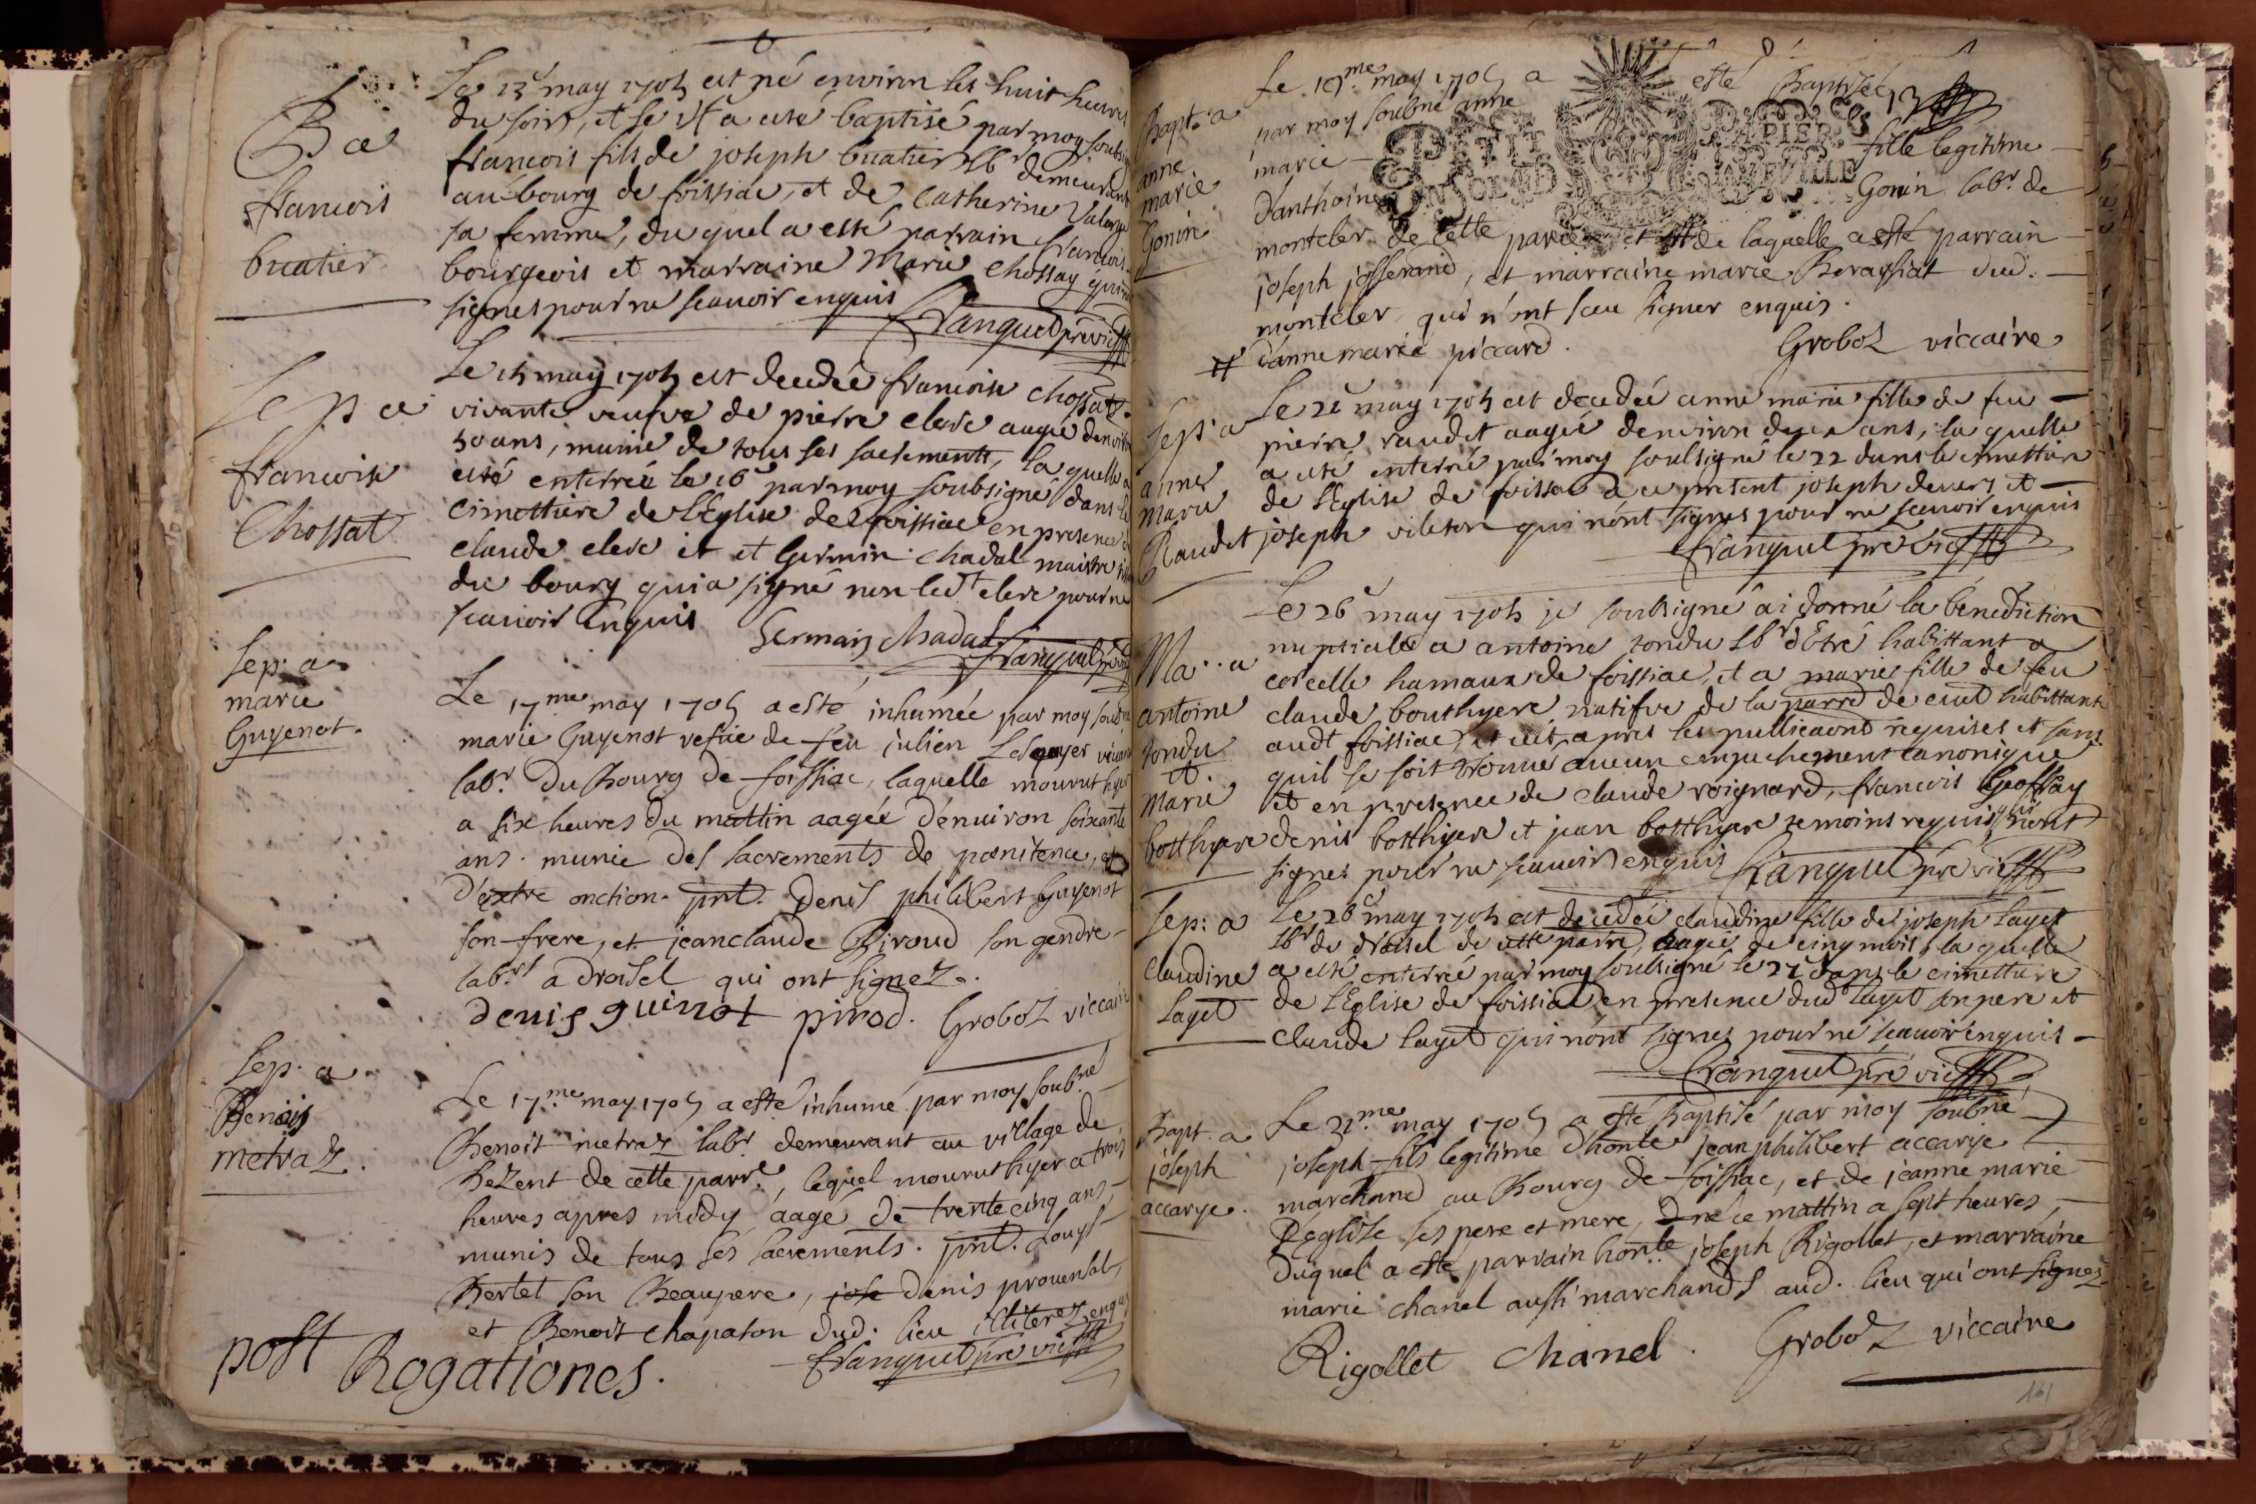 Ba
francois
buatier
Le 13 may 1705 est né environ les huit heures
du soir, et le 14 a esté baptisé par moy soubs
francois fils de joseph buatier lbr demeurant
au bourg de foissiac, et de Catherine
sa femme, du quel a esté parrain francois
bourgeois et marraine Marie Chossay qui
signes pour ne scauoir enquis
franquet pre vic
Sep a
francoise
Chossat
Le 15 may 1705 est decedée francoise chossat
vivante veufve de pierre clerc aagée denviron
50 ans, munie de tous ses sacrements, la quelle a
esté enterrée le 16 par moy soubsigné dans le
cimettiere de l'Eglise de foissiac en presence
claude clerc et et Germain chadal maistre
du bourg qui a signé non ledt clerc pour ne
scauoir enquis
Germain Chadal franquet
Sep. a
marie
Guyenot.
Le 17me may 1705 a esté inhumée par moy soub
marie Guyenot vefue de feu julien vivant
labr. du Bourg de foissiac, laquelle mourut hyer
a six heures du mattin aagée d'enuiron soixante
ans. munie des sacrements de poenitence, et
d'extre onction. pnt. Denis philibert Guyenot
son frere, et jeanclaude Piroud son gendre
labrs a Droisel qui ont signez.
denis guinot pirod. Groboz viccaire
Sep. a
Benois
metraz.
Le 17.me may 1705 a esté inhumé par moy soub.né
Benoit metraz labr demeurant au village de
Bezent de cette parr.e, lequel mourut hyer a trois
heures apres midy aagé de trente cinq ans,
munis de tous ses sacrements. pnt. Louys
Bertet son Beaupere, jose denis prouensal,
et Benoit chapaton dud. lieu illiterez enquis
franquet pre vic
post Rogationes.
Bapt. a
anne
marie
Gonin
Le 19.me may 1705 a esté Baptisée
par moy soubné anne
marie fille legitime
d'anthoine Gonin labr. de
montcler de cette parre et # de laquelle a esté parrain
joseph josserand, et marraine marie Berayssiat dud.
montcler qui n'ont sceu signer enquis.
# d'anne marie piccard. Groboz viccaire
PETIT PAPIER
Sep. a
anne
Marie
Raudet
Le 21 may 1705 est decedée anne marie fille de feu
pierre raudet aagée denviron deux ans, la quelle
a esté enterré par moy soulsigné le 22 dans le cimettiere
de l'Eglise de foissia a ce present joseph devers et
joseph vileton qui n'ont signes pour ne scauoir enquis
franquet pre vic
Ma.. a
antoine
tondu
et.
Marie
botthyere
Le 26 may 1705 je soulsigné ai donné la bénediction
nuptiale a antoine tondu lbr d'Etré habittant a
corcelle hamaux de foissiac, et a marie fille de feu
claude bouthyere natifve de la parre de cuet habittante
audt foissiac, et cet apres les publicaons requises et sans
quil se soit trouué aucun empechement canonique
et en presence de claude roignard, francois Geoffray
denis botthyere et jean botthyere temoins requis, qui n'ont
signes pour ne scauoir enquis franquet pre vic
Sep: a
Claudine
Layet
Le 26 may 1705 est decedée claudine fille de joseph layet
lbr de droisel de cette parre, aagée de cinq mois, la quelle
a esté enterrée par moy soulsigné le 27 dans le cimettiere
de l'Eglise de foissiac en presence dud layet son pere et
claude layet qui n'ont signes pour ne scauoir enquis
franquet pre vic
Bapt. a
joseph
accarye.
Le 31.me may 1705 a esté Baptisé par moy soubné
joseph fils legitime d'honble jean philibert accarye
marchand au Bourg de foissiac, et de jeanne marie
Deglise ses pere et mere, né ce mattin a sept heures,
duquel a esté parrain honble joseph Rigollet, et marraine
marie chanel aussi marchands aud. lieu qui ont signez.
Rigollet Chanel. Groboz viccaire
161